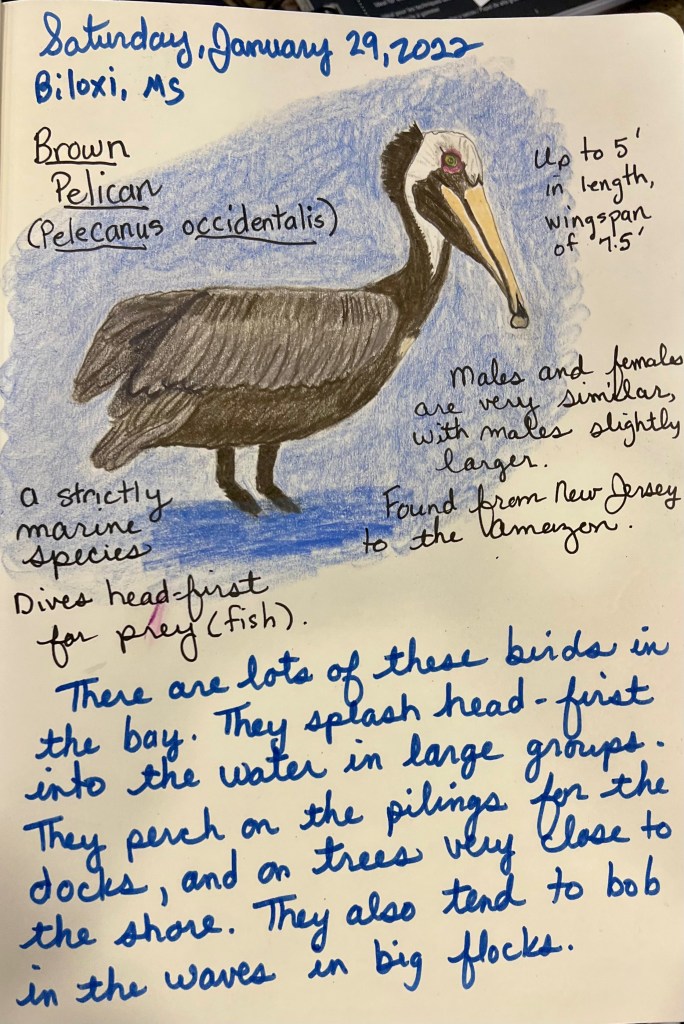 Saturday, January 29, 2022
Biloxi, MS
Brown
Pelican
(Pelecanus occidentalis)
Up to 5'
in length,
wingspan
of 7.5'
Males and females
are very similar,
with males slightly
larger.
Found from New Jersey
to the Amazon.
a strictly
marine
species
Dives head-first
for prey (fish).
There are lots of these birds in
the bay. They splash head-first
into the water in large groups.
They perch on the pilings for the
docks, and on trees very close to
the shore. They also tend to bob
in the waves in big flocks.